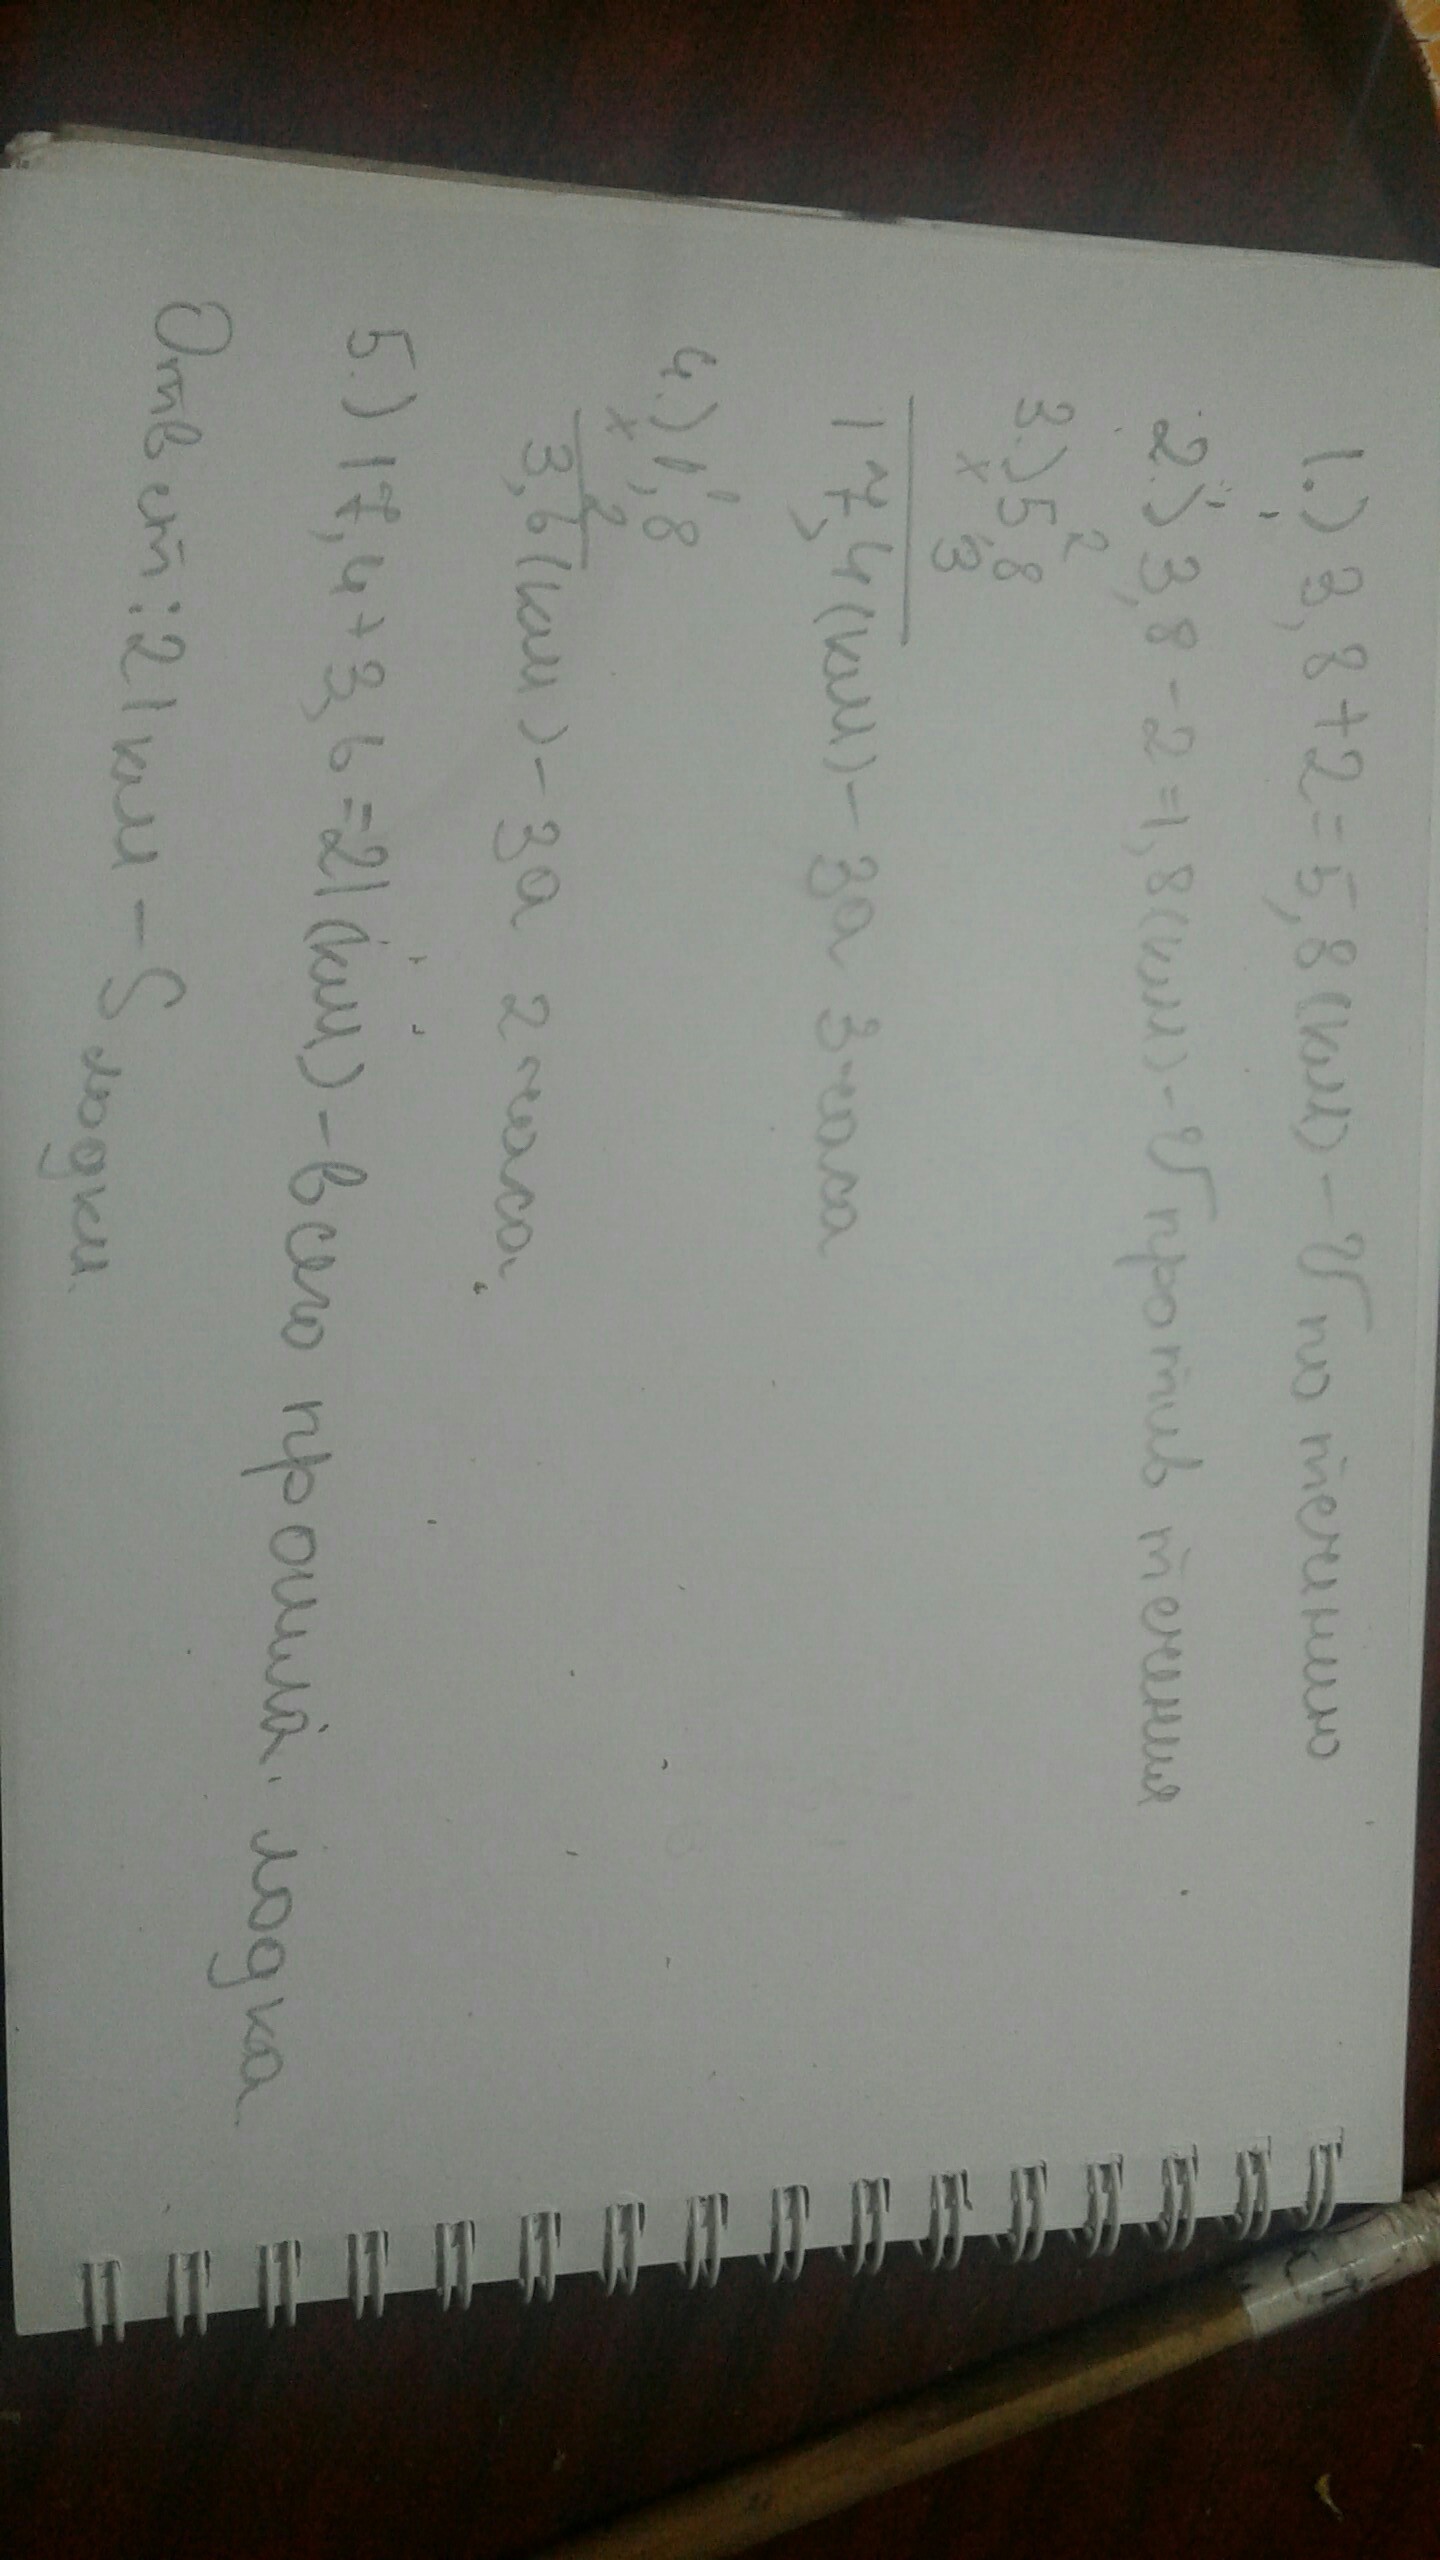 1.) 3,8+2=5,8(км)-V по течению
2.) 3,8-2=1,8(км)-V против течения
2
3.) 5,8
x 3
17,4(км)- за 3 часа
1
4.) 1,8
x 2
3,6(км)- за 2 часа.
5.) 17,4+3,6=21(км)-всего прошла лодка.
Ответ: 21 км - S лодки.